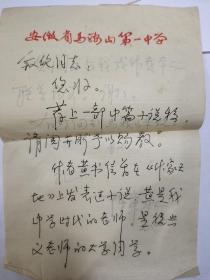 安徽省马鞍山第一中学
敬铭同志：
您好。
荐上一部中篇小说稿，
请阅并斧予以赐教。
作者黄书信曾在《作家天
地》上发表过小说，黄是我
中学时代的老师，是德兴
义老师的大学同学。